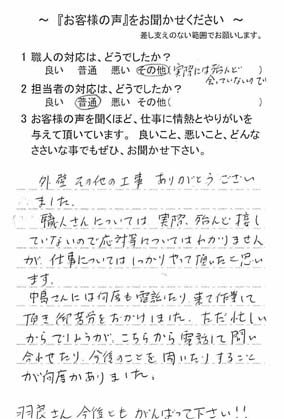 ～『お客様の声』をお聞かせください～
差し支えのない範囲でお願いします。
1 職人の対応は、どうでしたか？
良い 普通 悪い その他(実際には殆んど
会っていないので)
2 担当者の対応は、どうでしたか？
良い 普通 悪い その他( )
3 お客様の声を聞くほど、仕事に情熱とやりがいを
与えて頂いています。 良いこと、悪いこと、どんな
ささいな事でもぜひ、お聞かせ下さい。
外壁その他の工事 ありがとうござい
ました。
職人さんについては 実際、殆んど接し
ていないので応対等についてはわかりません
が、仕事についてはしっかりやって頂いたと思い
ます。
中島さんには何度も電話したり、来て作業して
頂き御苦労をおかけしました。ただ忙しい
からでしょうが、こちらから電話して問い
合わせたり、今後のことを聞いたりすること
が何度かありました。
羽良さん 今後とも がんばって下さい!!